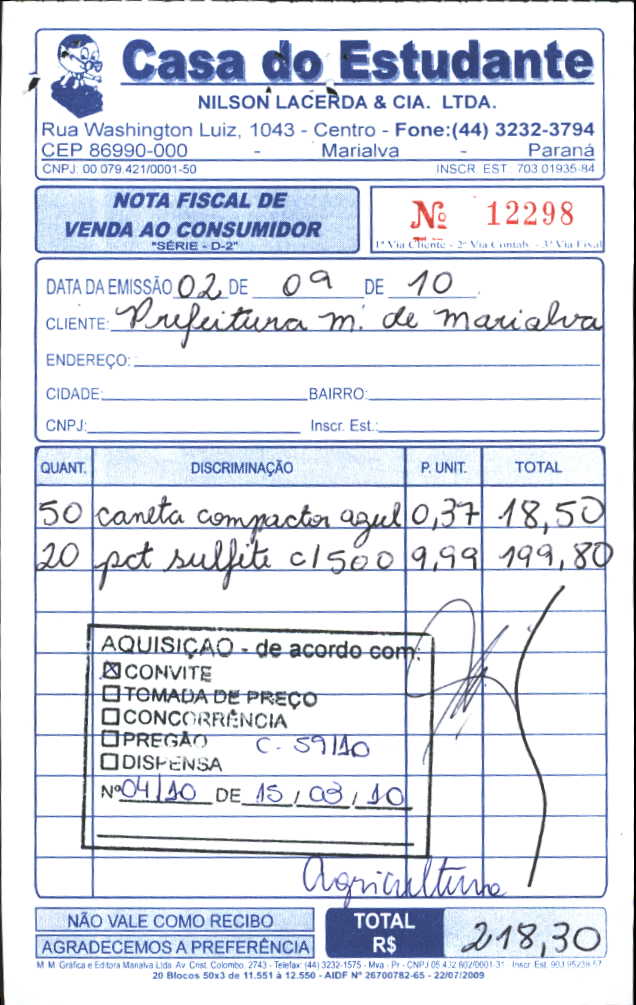 Casa do Estudante
NILSON LACERDA & CIA. LTDA.
Rua Washington Luiz, 1043 - Centro - Fone:(44) 3232-3794
CEP 86990-000 - Marialva - Paraná
CNPJ: 00.079.421/0001-50 INSCR. EST. 703.01935-84
NOTA FISCAL DE
VENDA AO CONSUMIDOR
"SÉRIE - D-2"
Nº 12298
1ª Via Cliente - 2ª Via Contab. - 3ª Via Fixal
DATA DA EMISSÃO 02 DE 09 DE 10
CLIENTE: Prefeitura M. de Marialva
ENDEREÇO:
CIDADE: BAIRRO:
CNPJ: Inscr. Est.:
QUANT. DISCRIMINAÇÃO P. UNIT. TOTAL
50 caneta compactor azul 0,37 18,50
20 pct sulfite c/500 9,99 199,80
AQUISIÇAO - de acordo com:
CONVITE
TOMADA DE PREÇO
CONCORRÊNCIA
PREGÃO C. 59/10
DISPENSA
Nº 04/10 DE 15/03/10
Agricultura
NÃO VALE COMO RECIBO
AGRADECEMOS A PREFERÊNCIA
TOTAL
R$ 218,30
M. M. Gráfica e Editora Marialva Ltda. Av. Crist. Colombo, 2743 - Telefax: (44) 3232-1575 - Mva - Pr - CNPJ 05.432.602/0001-31 Inscr. Est. 903.95238-57
20 Blocos 50x3 de 11.551 à 12.550 - AIDF Nº 26700782-65 - 22/07/2009